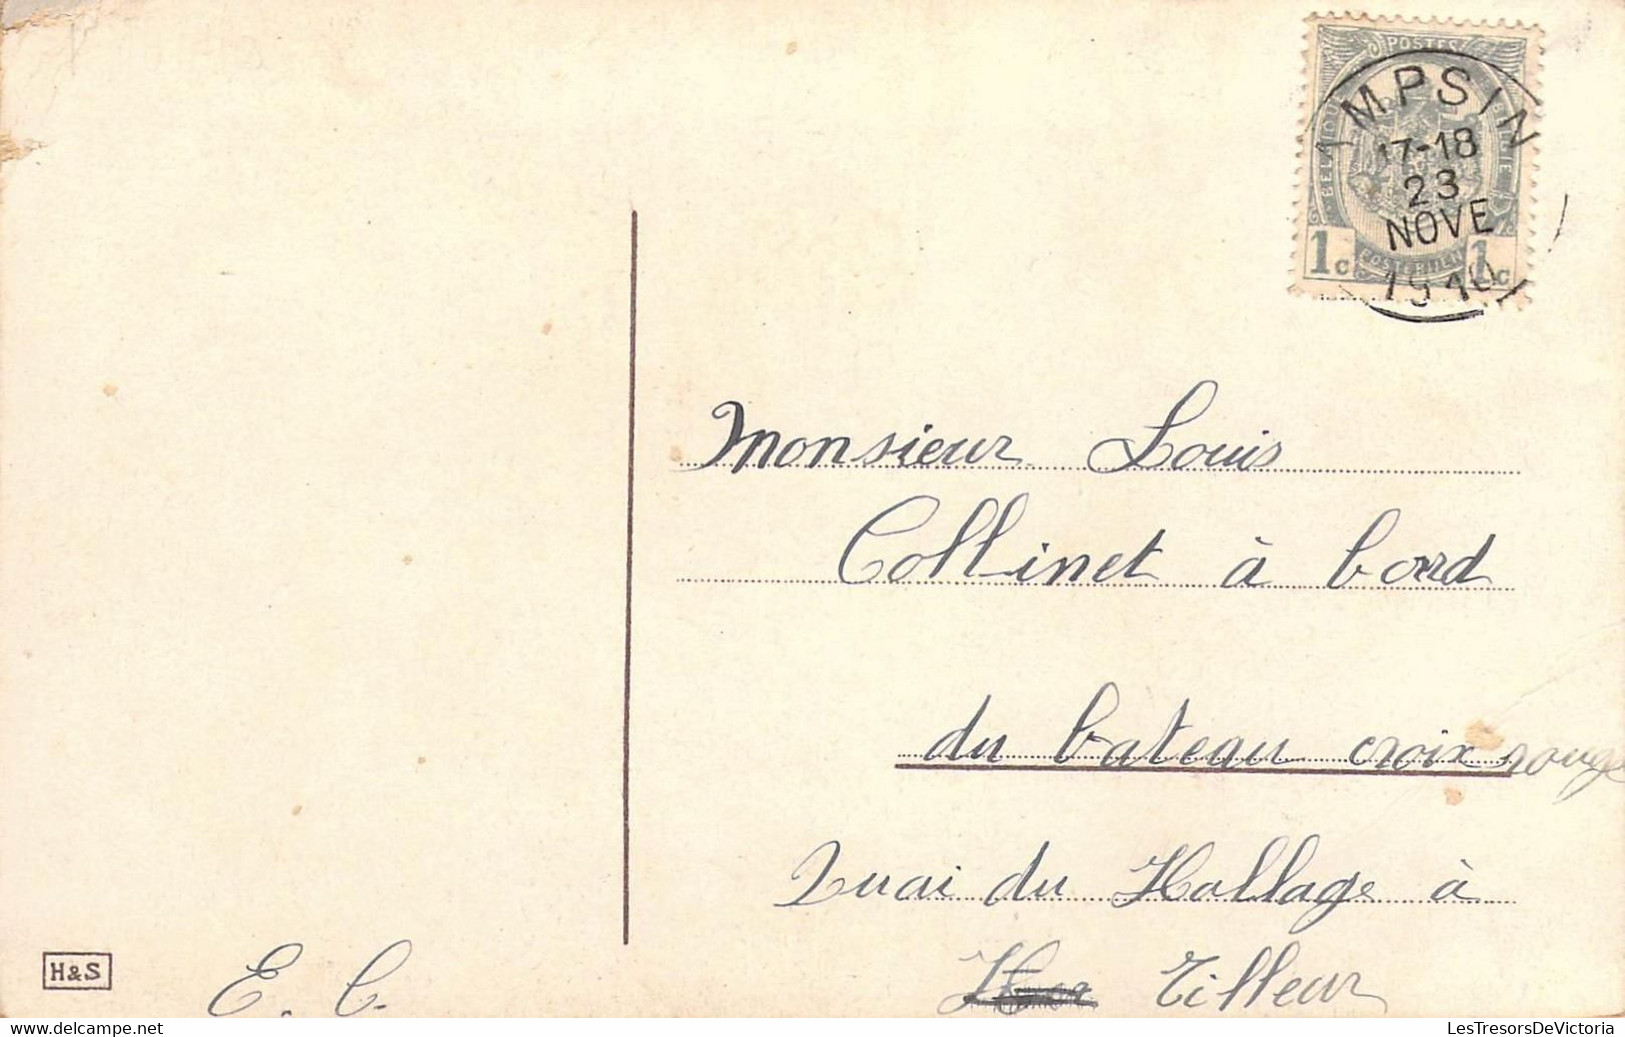 POSTES
BELGIQUE
AMPSIN
17-18
23
NOVE
1910
1c 1c
POSTERIJEN
Monsieur Louis
Collinet à bord
du bateau croix rouge
Quai du Hallage à
Tilleur
E. C.
H&S
www.delcampe.net
LesTresorsDeVictoria